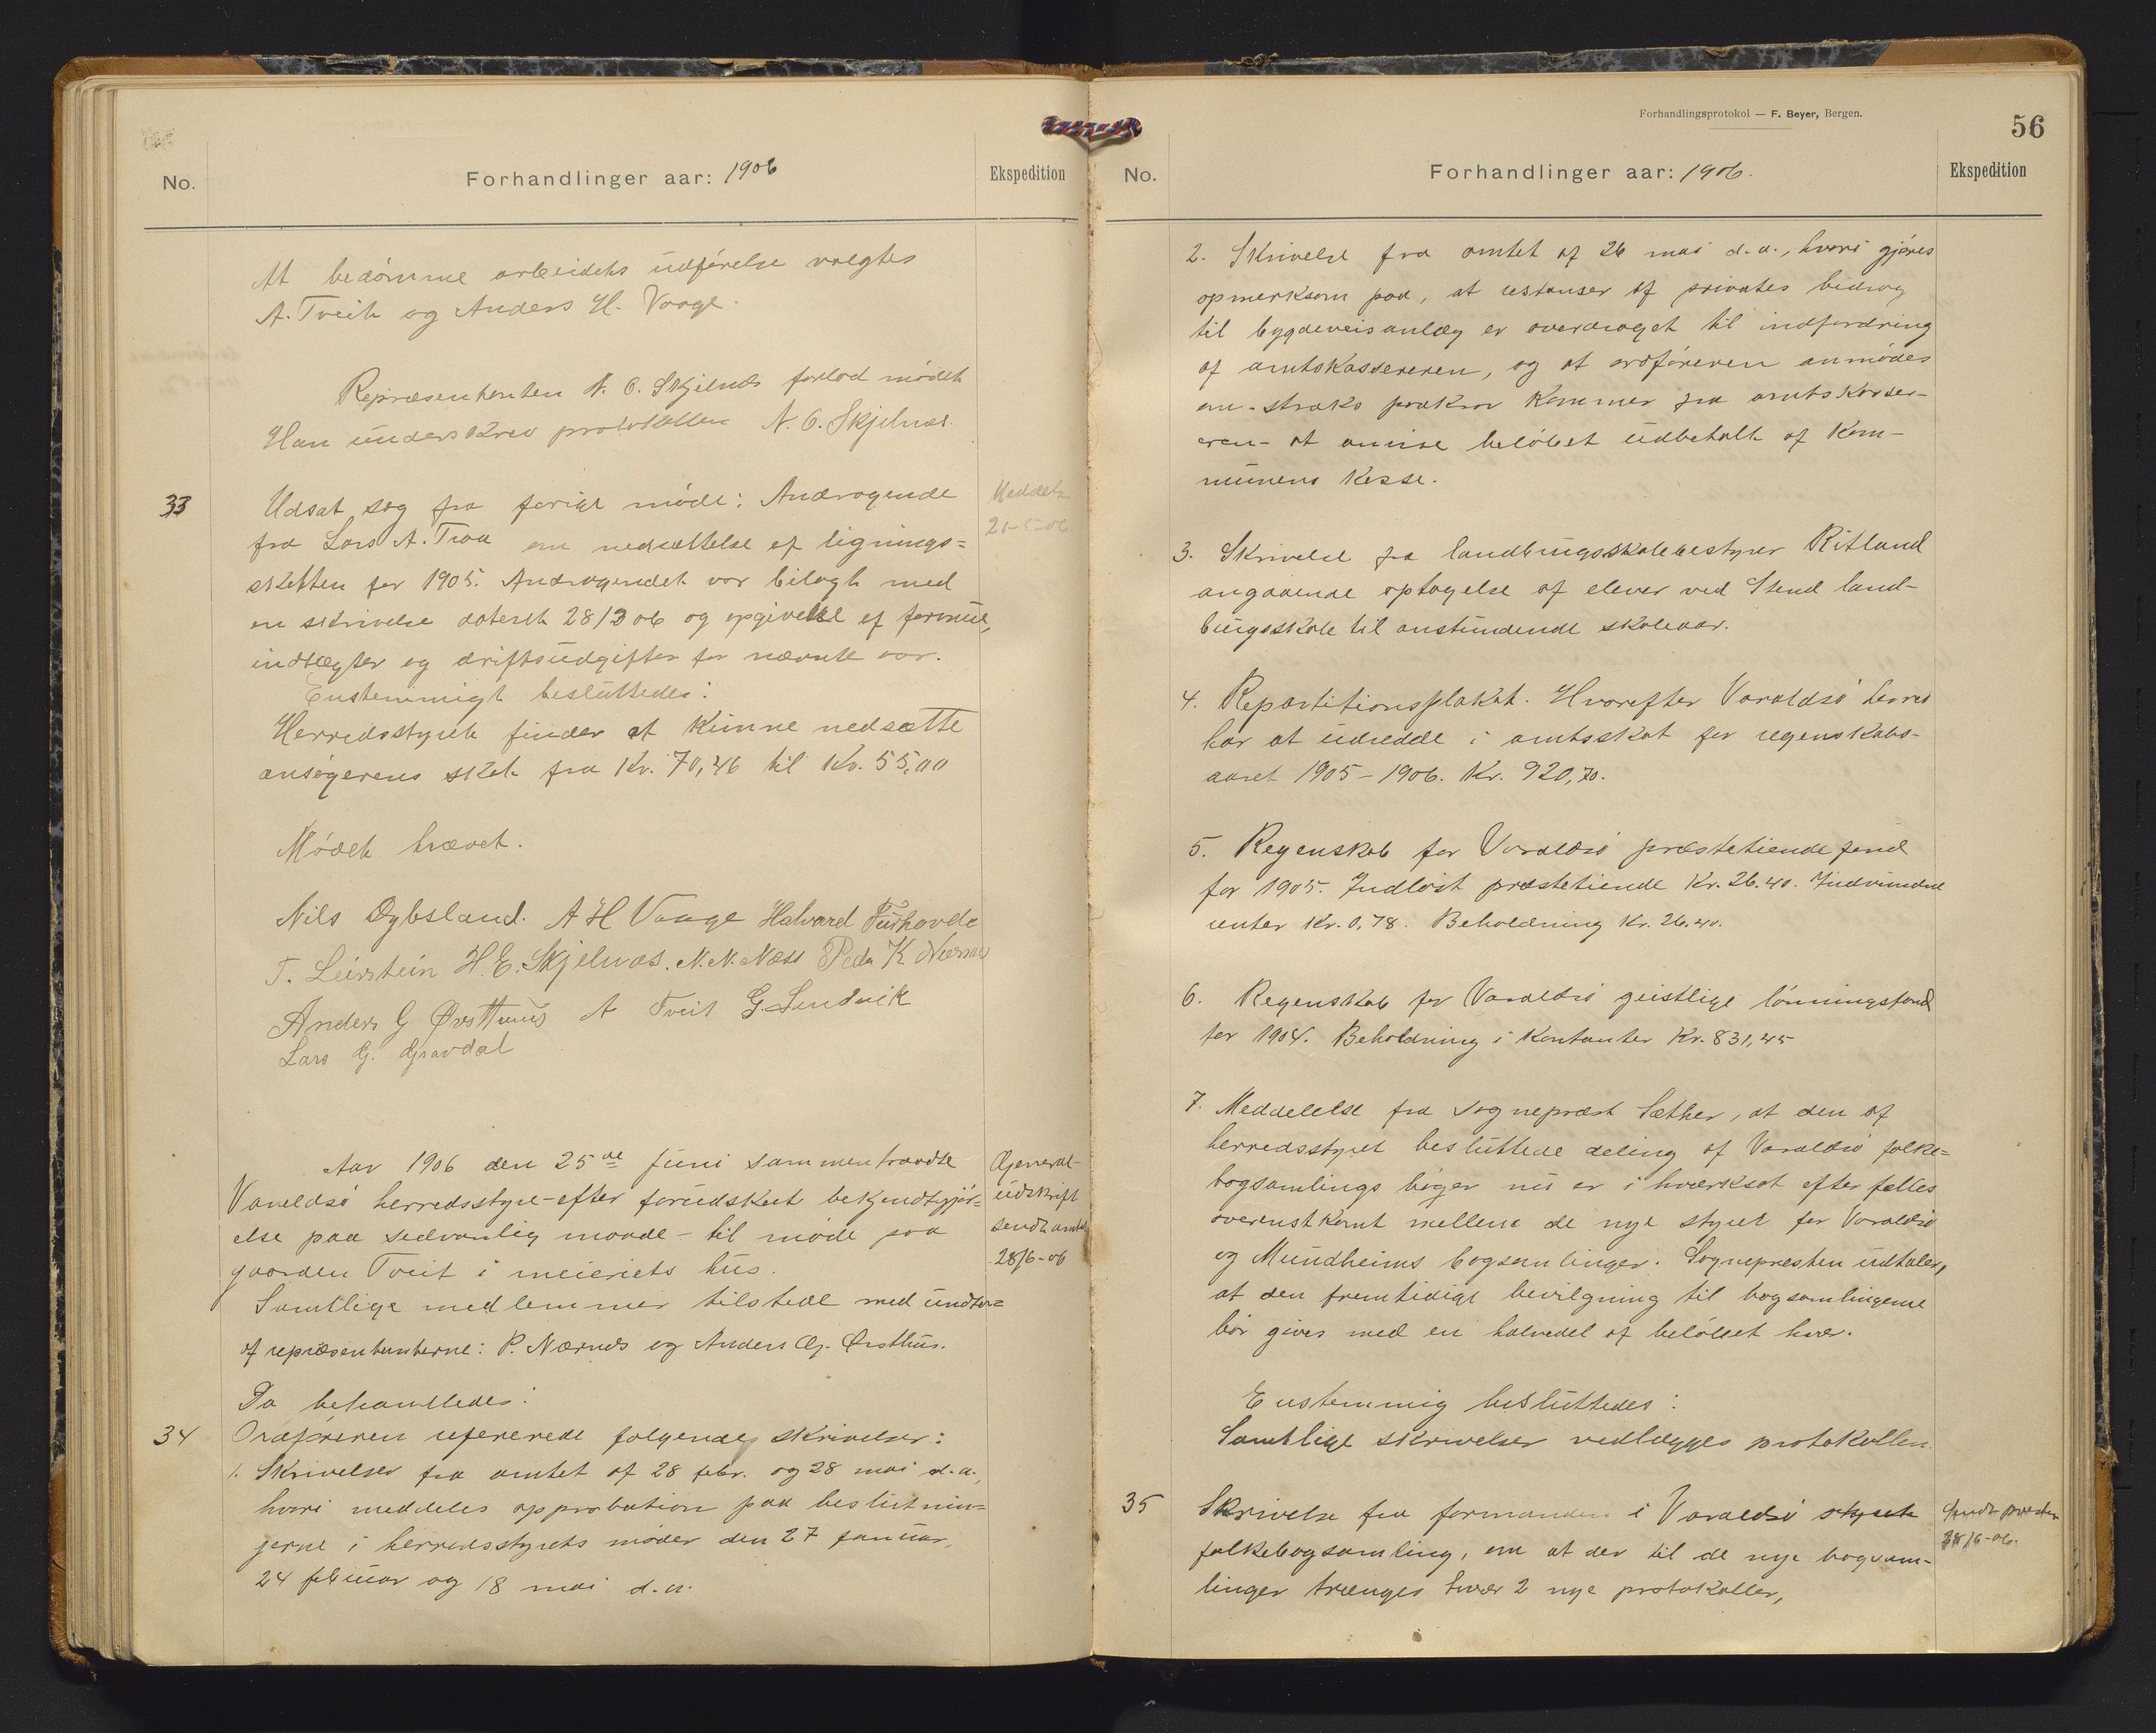 No.
Forhandlinger aar: 1906
Ekspedition
At bedømme arbeidets udførelse valgtes
A. Tveit og Anders H. Vaage.
Repræsentanten N. O. Skjelnes forlod mødet
Han underskrev protokollen N. O. Skjelnæs.
33
Udsat sag fra forige møde: Andragende
Meddelt
fra Lars A. Traa om nedsættelse af lignings=
21-5-06
skatten for 1905. Andragendet var bilagt med
en skrivelse dateret 28/3 06 og opgivelse af formue,
indtægter og driftsudgifter for nævnte aar.
Enstemmigt besluttedes:
Herredsstyret finder at kunne nedsætte
ansøgerens skat fra Kr. 70,46 til Kr. 55,00
Mødet hævet.
Nils Dybsland. A H Vaage Halvard Tüshovde
T. Leirstein H. E. Skjelnæs. N. N. Næss Peder K Nærnæs
Anders G Øvsthuus A Tveit G. Sundvik
Lars G. Gravdal
Aar 1906 den 25de Juni sammentraadte
General-
Varaldsø herredsstyre - efter forudskeet bekjendtgjør=
udskrift
else paa sedvanlig maade - til møde paa
sendt amtet
gaarden Tveit i meieriets hus.
28/6-06
Samtlige medlemmer tilstede med undtar=
af repræsentanterne: P. Nærnes og Anders G. Øvsthus.
Da behandledes:
34
Ordføreren refererede følgende skrivelser:
1. Skrivelser fra amtet af 28 febr. og 28 mai d.a.,
hvori meddeles approbation paa beslutnin=
gerne i herredsstyrets møder den 27 januar,
24 februar og 18 mai d.a.
Forhandlingsprotokol — F. Beyer, Bergen.
56
No.
Forhandlinger aar: 1906.
Ekspedition
2. Skrivelse fra amtet af 26 mai d.a., hvori gjøres
opmerksom paa, at restanser af privates bidrag
til bygdeveisanlæg er overdraget til indfordring
af amtskassereren, og at ordføreren anmodes
om - straks paakrav kommer fra amtskasser-
eren - at anvise beløbet udbetalt af kom-
munens kasse.
3. Skrivelse fra landbrugsskolebestyrer Ritland
angaaende optagelse af elever ved Stend land-
brugsskole til anstundende skoleaar.
4. Repartitionsplakat. Hvorefter Varaldsø herred
har at udredde i amtsskat for regenskabs-
aaret 1905-1906. Kr. 920,70.
5. Regenskab for Varaldsø præstetiendefond
for 1905. Indløst præstetiende Kr. 26.40. Indvundne
renter Kr. 0,78. Beholdning Kr. 26.40.
6. Regenskab for Varaldsø geistlige lønningsfond
for 1904. Beholdning i kontanter Kr. 831,45
7. Meddelelse fra sognepræst Sæther, at den af
herredsstyret besluttede deling af Varaldsø folke=
bogsamlings bøger nu er i hværksat efter fælles
overenstkomst mellem de nye styrer for Varaldsø
og Mundheims bogsamlinger. Sognepresten udtaler,
at den fremtidige bevilgning til bogsamlingerne
bør gives med en halvedel af beløbet hver.
Enstemmig besluttedes:
Samtlige skrivelser vedlægges protokollen.
35
Skrivelse fra formanden i Varaldsø styret
Sendt presten
folkebogsamling, om at der til de nye bogsam-
28/6-06.
linger trænges hver 2 nye protokoller,